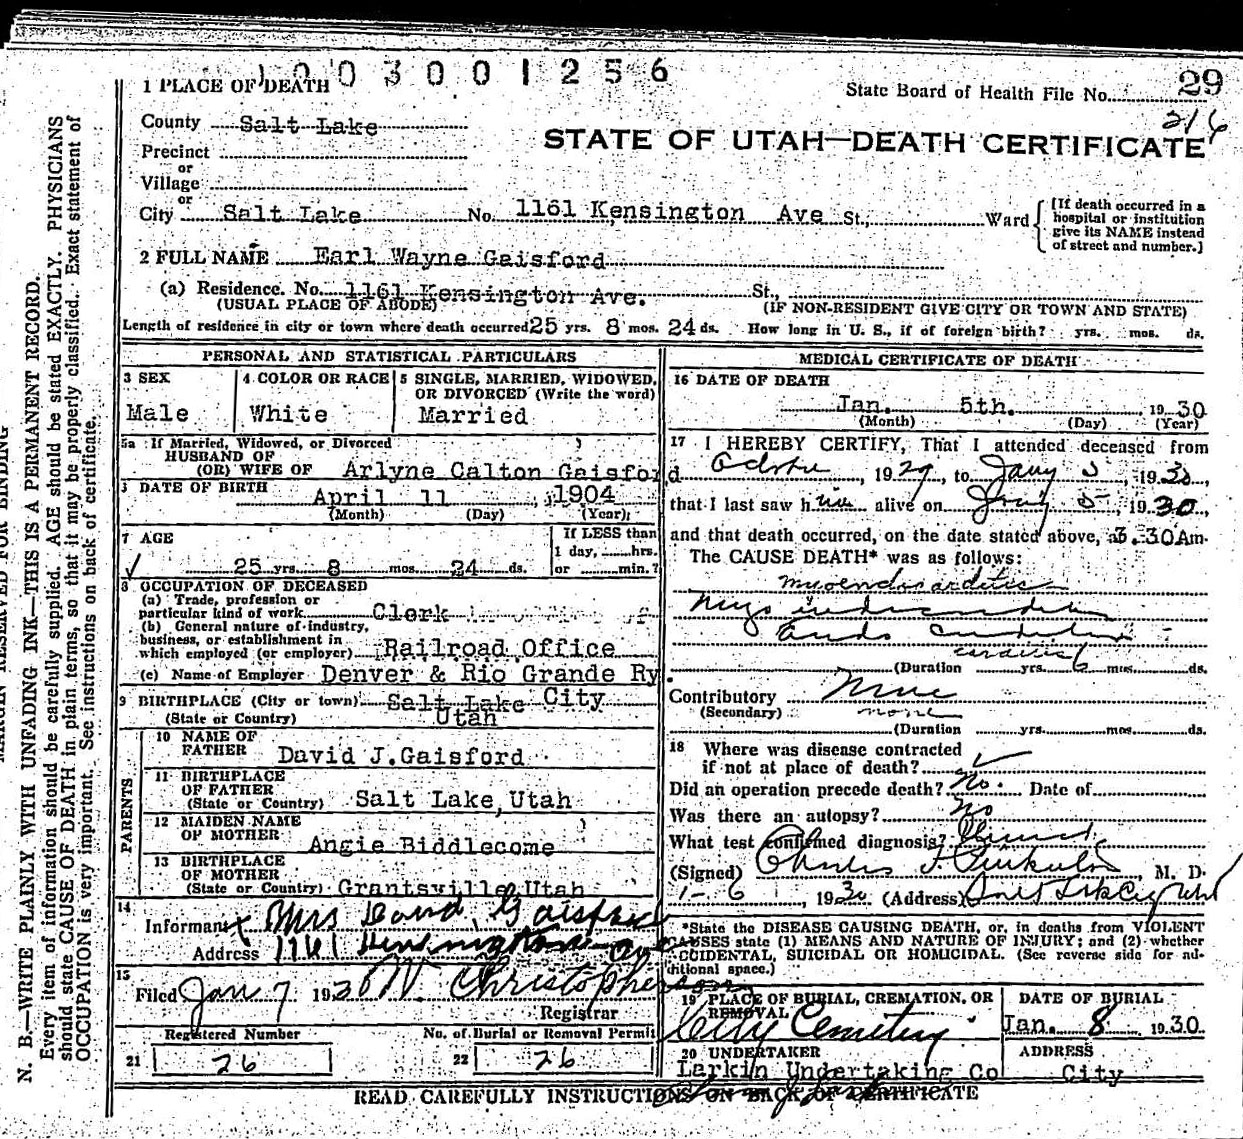 1003001256
29
State Board of Health File No.
216
1 PLACE OF DEATH
STATE OF UTAH—DEATH CERTIFICATE
County Salt Lake
Precinct
or
Village
or
City Salt Lake No. 1161 Kensington Ave St., Ward
[If death occurred in a hospital or institution give its NAME instead of street and number.]
2 FULL NAME Earl Wayne Gaisford
(a) Residence. No. 1161 Kensington Ave. St.,
(USUAL PLACE OF ABODE) (IF NON-RESIDENT GIVE CITY OR TOWN AND STATE)
Length of residence in city or town where death occurred 25 yrs. 8 mos. 24 ds. How long in U. S., if of foreign birth? yrs. mos. ds.
PERSONAL AND STATISTICAL PARTICULARS
3 SEX
Male
4 COLOR OR RACE
White
5 SINGLE, MARRIED, WIDOWED, OR DIVORCED (Write the word)
Married
5a If Married, Widowed, or Divorced
HUSBAND OF
(OR) WIFE OF Arlyne Calton Gaisford
DATE OF BIRTH
April 11, 1904
(Month) (Day) (Year)
7 AGE
25 yrs. 8 mos. 24 ds.
If LESS than
1 day, hrs.
or min.?
8 OCCUPATION OF DECEASED
(a) Trade, profession or
particular kind of work Clerk
(b) General nature of industry,
business, or establishment in
which employed (or employer) Railroad Office
(c) Name of Employer Denver & Rio Grande Ry.
9 BIRTHPLACE (City or town) Salt Lake City
(State or Country) Utah
PARENTS
10 NAME OF
FATHER David J. Gaisford
11 BIRTHPLACE
OF FATHER
(State or Country) Salt Lake, Utah
12 MAIDEN NAME
OF MOTHER
Angie Biddlecome
13 BIRTHPLACE
OF MOTHER
(State or Country) Grantsville, Utah
14
Informant x Mrs David J. Gaisford
Address 1161 Kensington Ave
15
Filed Jan 7 1930 W. Christopherson
Registrar
Registered Number
21 26
No. of Burial or Removal Permit
22 26
MEDICAL CERTIFICATE OF DEATH
16 DATE OF DEATH
Jan. 5th. 1930
(Month) (Day) (Year)
17 I HEREBY CERTIFY, That I attended deceased from
1929, to Jany 5, 1930,
that I last saw him alive on Jany 5, 1930,
and that death occurred, on the date stated above, a 3.30 Am.
The CAUSE DEATH* was as follows:
myoendocarditis
(Duration yrs. 6 mos. ds.
Contributory None
(Secondary) none
(Duration yrs. mos. ds.
18 Where was disease contracted
if not at place of death?
Did an operation precede death? No. Date of
Was there an autopsy? No
What test confirmed diagnosis? Clinical
(Signed) Charles F., M. D.
1-6, 1930. (Address) Salt Lake City Utah
*State the DISEASE CAUSING DEATH, or, in deaths from VIOLENT
CAUSES state (1) MEANS AND NATURE OF INJURY; and (2) whether
ACCIDENTAL, SUICIDAL OR HOMICIDAL. (See reverse side for ad-
ditional space.)
19 PLACE OF BURIAL, CREMATION, OR
REMOVAL
City Cemetery
DATE OF BURIAL
Jan. 8 1930
20 UNDERTAKER
Larkin Undertaking Co
ADDRESS
City
READ CAREFULLY INSTRUCTIONS ON BACK OF CERTIFICATE
MARGIN RESERVED FOR BINDING
N. B.—WRITE PLAINLY WITH UNFADING INK—THIS IS A PERMANENT RECORD.
Every item of information should be carefully supplied. AGE should be stated EXACTLY. PHYSICIANS
should state CAUSE OF DEATH in plain terms, so that it may be properly classified. Exact statement of
OCCUPATION is very important. See instructions on back of certificate.